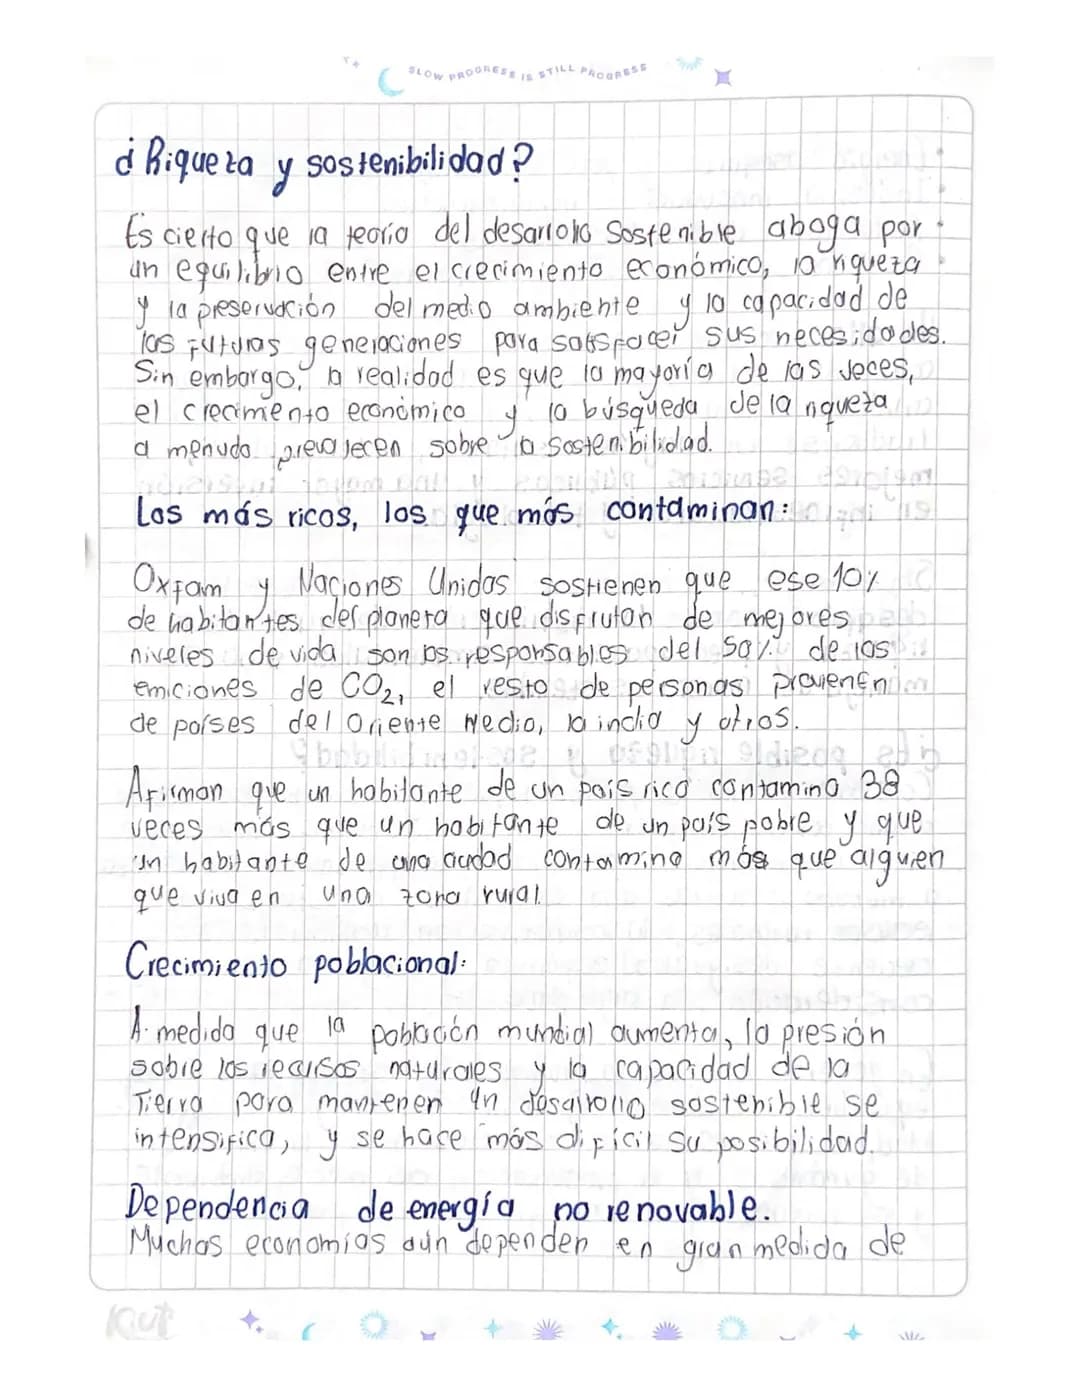 SLOW PROGRESS IS STILL PROGRESS
¿Riqueza y sostenibilidad?
Es cierto que la teoría del desarrollo Sostenible aboga por
un equilibrio entre el crecimiento económico, la riqueza
y la preservación del medio ambiente y la capacidad de
las futuras generaciones para satisfacer sus necesidades.
Sin embargo, la realidad es que la mayoría de las veces,
el crecimiento económico y la búsqueda de la riqueza
a menudo prevalecen sobre la sostenibilidad.
Los más ricos, los que más contaminan:
Oxfam y Naciones Unidas sostienen que ese 10%
de habitantes del planera que disfrutan de mejores
niveles de vida son los responsables del 50% de las
emiciones de CO2, el resto de personas provienen
de países del Oriente Medio, la india y otros.
Afirman que un habitante de un país rico contamina 38
veces más que un habitante de un país pobre y que
un habitante de una ciudad contamina más que alguien
que viva en una zona rural.
Crecimiento poblacional:
A medida que la población mundial aumenta, la presión
sobre los recursos naturales y la capacidad de la
Tierra para mantener un desarrollo sostenible se
intensifica, y se hace más difícil su posibilidad.
Dependencia de energía no renovable.
Muchas economías aún dependen en gran medida de